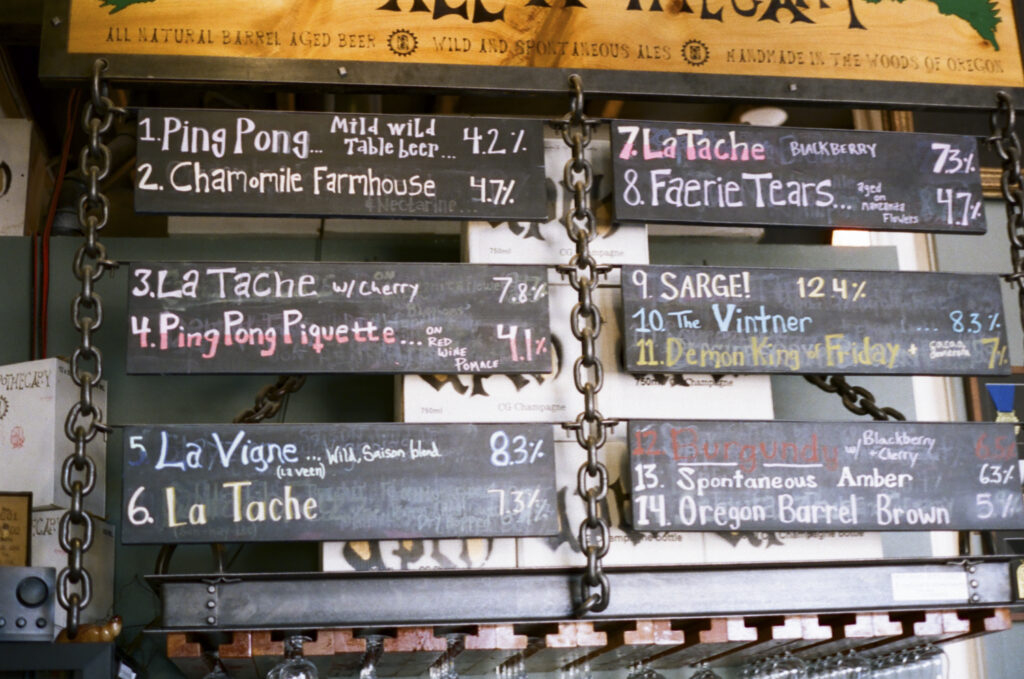 ALL NATURAL BARREL AGED BEER WILD AND SPONTANEOUS ALES HANDMADE IN THE WOODS OF OREGON
1. Ping Pong... Mild wild Table beer... 4.2%
2. Chamomile Farmhouse 4.7%
3. La Tache w/ Cherry 7.8%
4. Ping Pong Piquette... ON RED WINE POMACE 4.1%
5 La Vigne... (La veen) Wild, Saison blend 8.3%
6. La Tache 7.3%
7. La Tache BLACKBERRY 7.3%
8. Faerie Tears... aged on manzanita Flowers 4.7%
9. SARGE! 12.4%
10. The Vintner ... 8.3%
11. Demon King of Friday + 7%
12. Burgundy w/ Blackberry + Cherry
13. Spontaneous Amber 6.3%
14. Oregon Barrel Brown 5%
750ml CG Champagne
750ml CG Champagne
750ml Champagne